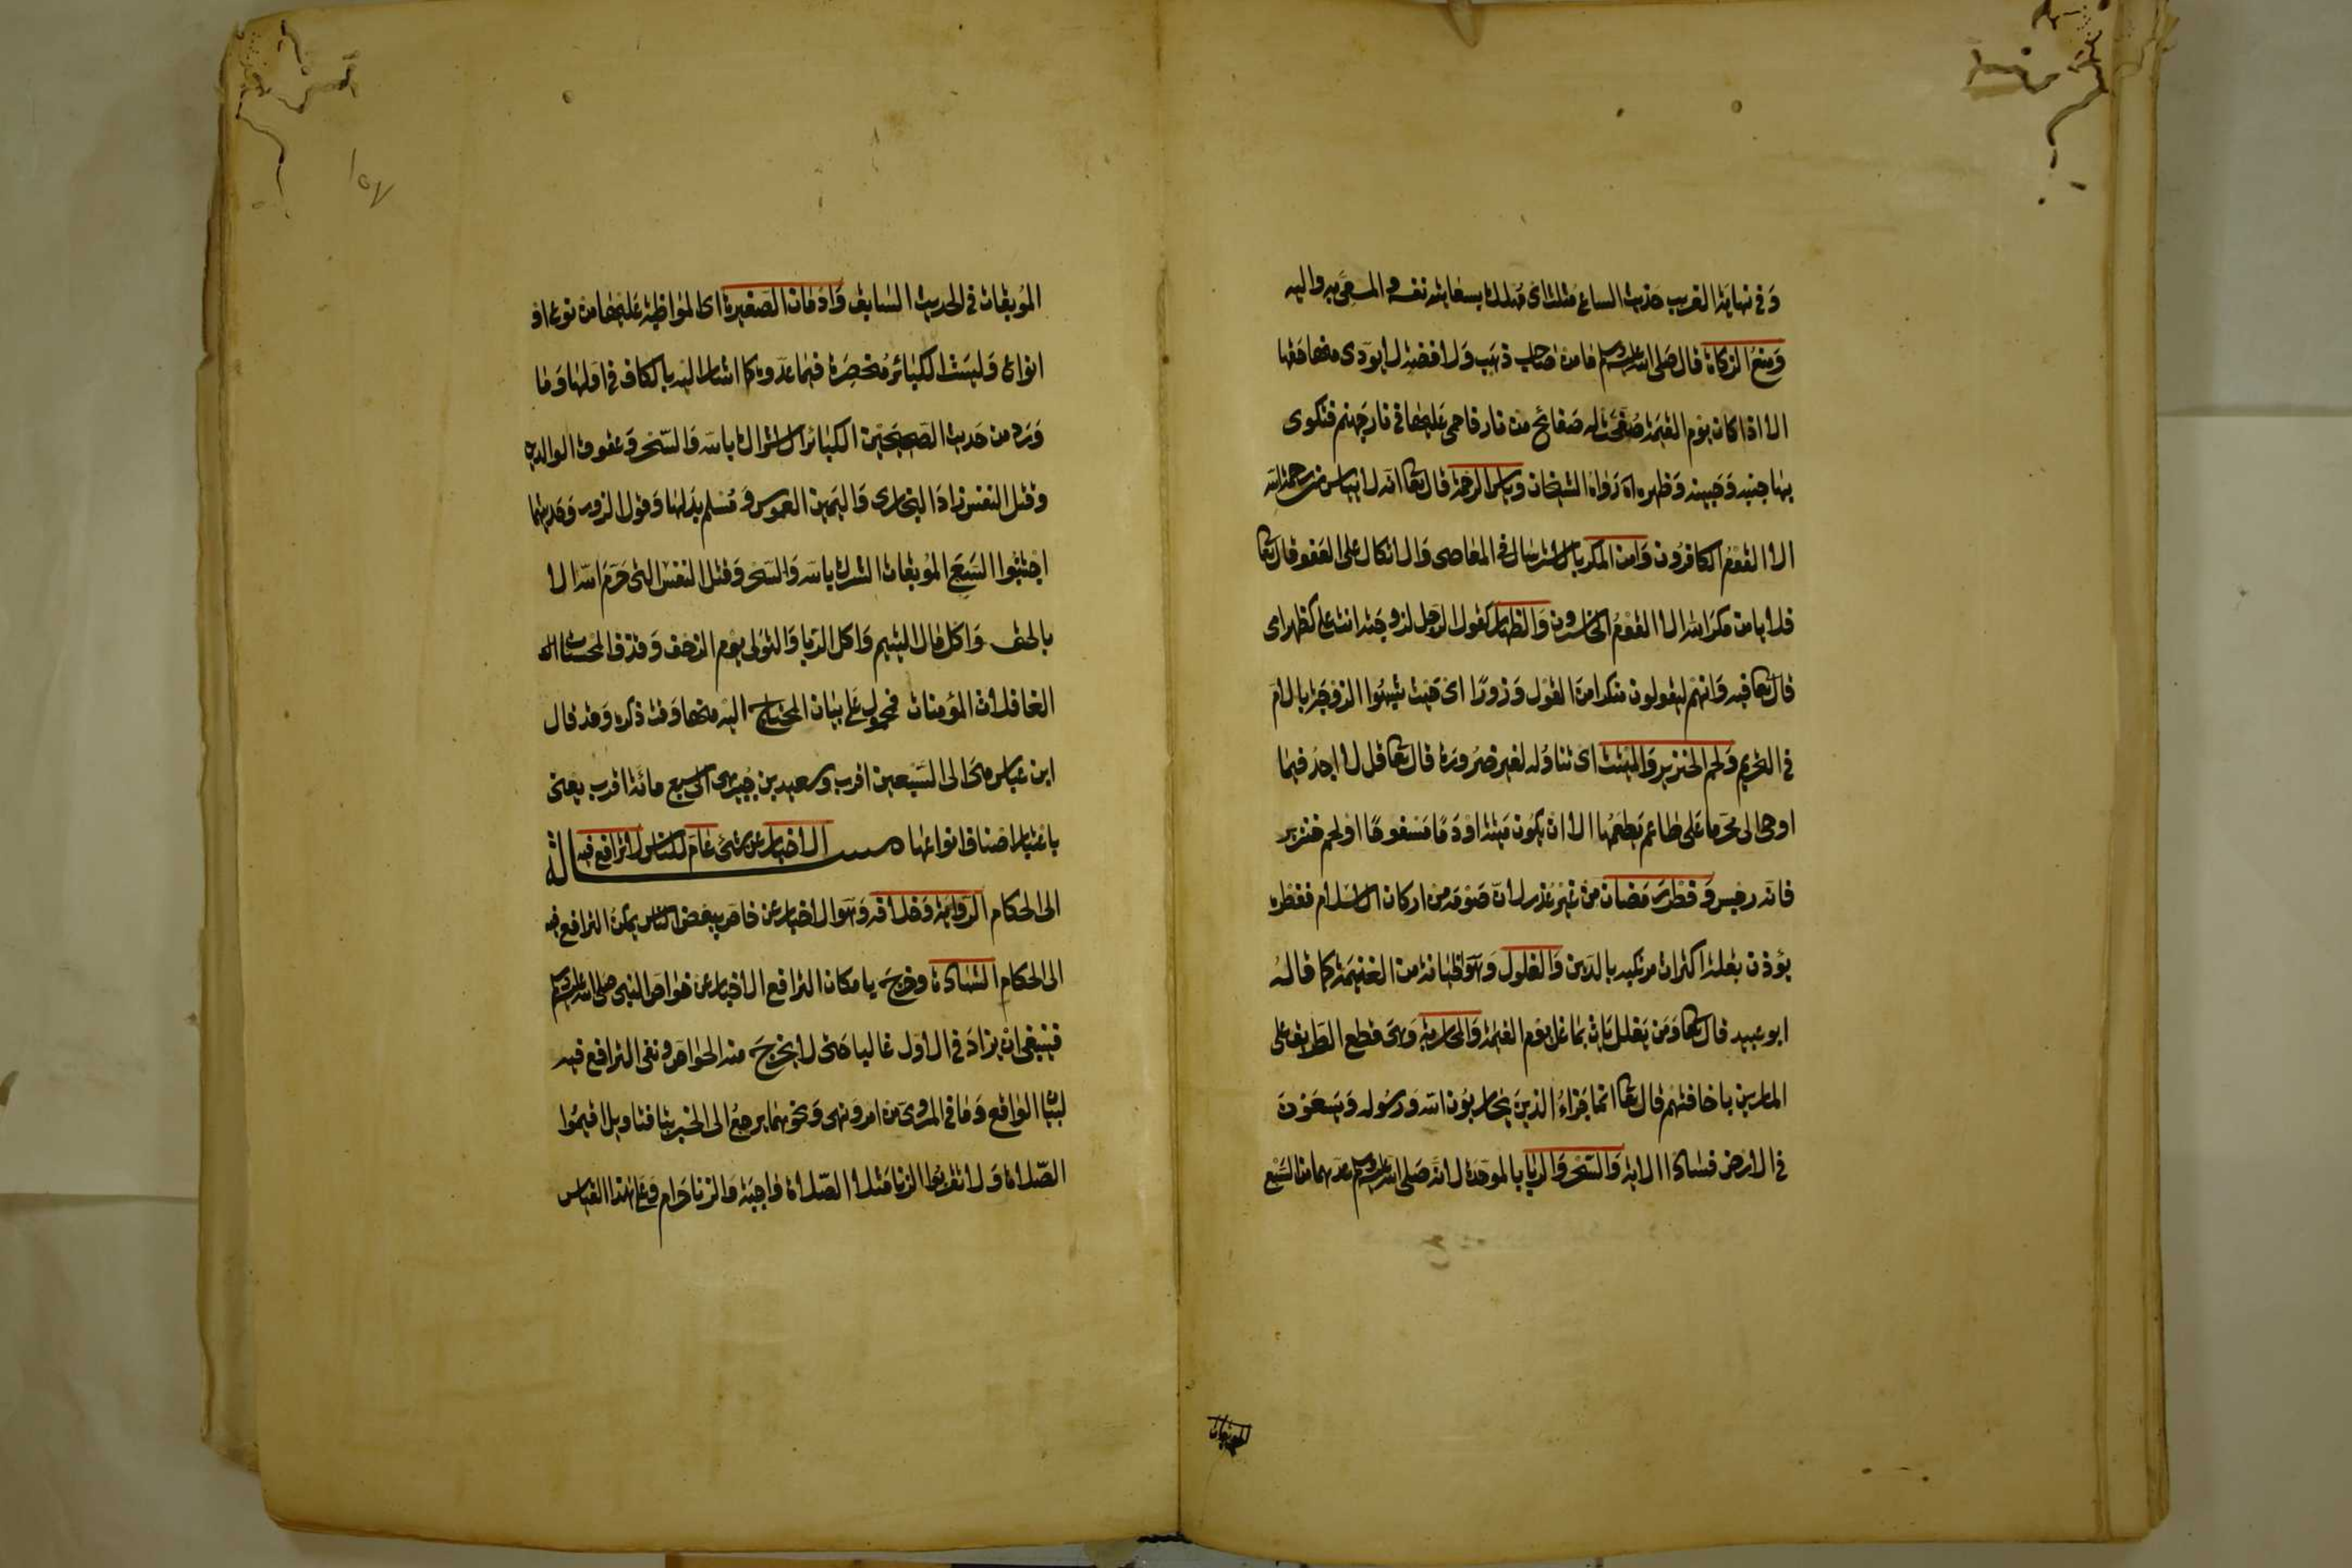 وَفى نهاية الغريب حديث الساعى مثلث اى مهلك بسعايته نفسه والمسعى به واليه
وَمنع الزكاة قال صلى الله عليه وسلم مَا من صَاحب ذهَب وَلا فضة لا يؤدى منها حقها
الا اذا كان يوم القيمة صُفحت له صَفائح من نار فاحمى عَليها فى نار جَهنم فتكوى
بها جنبه وَجبينه وَظهره اه رَواه الشيخان وَياس الرحمة قال تعالى انه لا يياس من رحمة الله
الا القوم الكافرون وَامن المكر بالاسترسال فى المعاصى وَالاتكال على العفو قال تعالى
فلا يامن مكر الله الا القوم الخاسرون وَالظهار كقول الرجل لزوجته انت على كظهر امى
قال تعالى فيه وَانهم ليقولون منكرا من القول وَزورًا اى حيث شبهوا الزوجة بالام
فى التحريم وَلحم الخنزير وَالميتة اى تناوله لغير ضرورة قال تعالى قل لا اجد فيما
اوحى الى محرما على طاعم يَطعمه الا ان يكون ميتة اودمًا مسفوحًا اولحم خنزير
فانه رجس وَفطر رمضان من غير عذر لان صَومه من اركان الاسلام ففطره
يؤذن بقلة اكتراث مرتكبه بالدين وَالغلول وَهو الخيانة من الغنيمة كما قاله
ابو عبيد قال تعالى وَمَن يَغلل يَات بما غل يوم القيمة وَالمحاربة وَهى قطع الطريق على
المارين باخافتهم قال تعالى انما جَزاءُ الذين يحاربون الله وَرسُوله وَيسعَوْن
فى الارض فسَادًا الاية وَالسّحر وَالربا بالموحدة لانه صَلى الله عليه وسلم عدهما من السّبع
الموبقات
المُوبقات فى الحديث السَابق وَادمَان الصَغيرة اى المواظبة عَليها من نوع او
انواع وَليسَت الكبَائر مُنحصرة فيما عدوه كما اشار اليه بالكاف فى اولها وَمَا
وَرد من حَديث الصَحيحين الكبَائر الاشراك باللّه وَالسّحر وَعقوق الوالدين
وَقتل النفس زادَ البخارى وَاليمين الغموس وَمسلم بدلها وَقول الزور وَحديثهما
اجتنبُوا السَبع المُوبقات الشرك باللّه وَالسّحر وَقتل النفس التى حَرم اللّه الا
بالحق وَاكل مَال اليتيم وَاكل الربا وَالتولى يوم الزحف وَقذف المحصنات
الغافلات المؤمنات فمحمول على بيَان المحتاج اليه منها وَقت ذكره وَقد قال
ابن عباس هى الى السّبعين اقرب وسعيد بن جبير هى الى سبع مائة اقرب يعنى
باعتبار اصناف انواعها مسـالة الاخبار عن شىء عَام للناس لا ترافع فيه
الى الحكام الرواية وَخلافه وَهو الاخبار عن خاص ببعض الناس يمكن الترافع فيه
الى الحكام الشهادة وخرج بامكان الترافع الاخبار عن خواص النبى صلى الله عليه وسلم
فينبغى ان يزادَ فى الاول غالبا حتى لا يخرج منه الخواص ونفى الترافع فيه
لبيَان الوَاقع وَمَا فى المروى من امر وَنهى وَنحوهما يرجع الى الخبر بتاويل فتاويل اقيمُوا
الصّلاة وَلا تقربُوا الزنا مَثلا الصّلاة وَاجبة وَالزنا حَرام وَعلى هَذا القياس